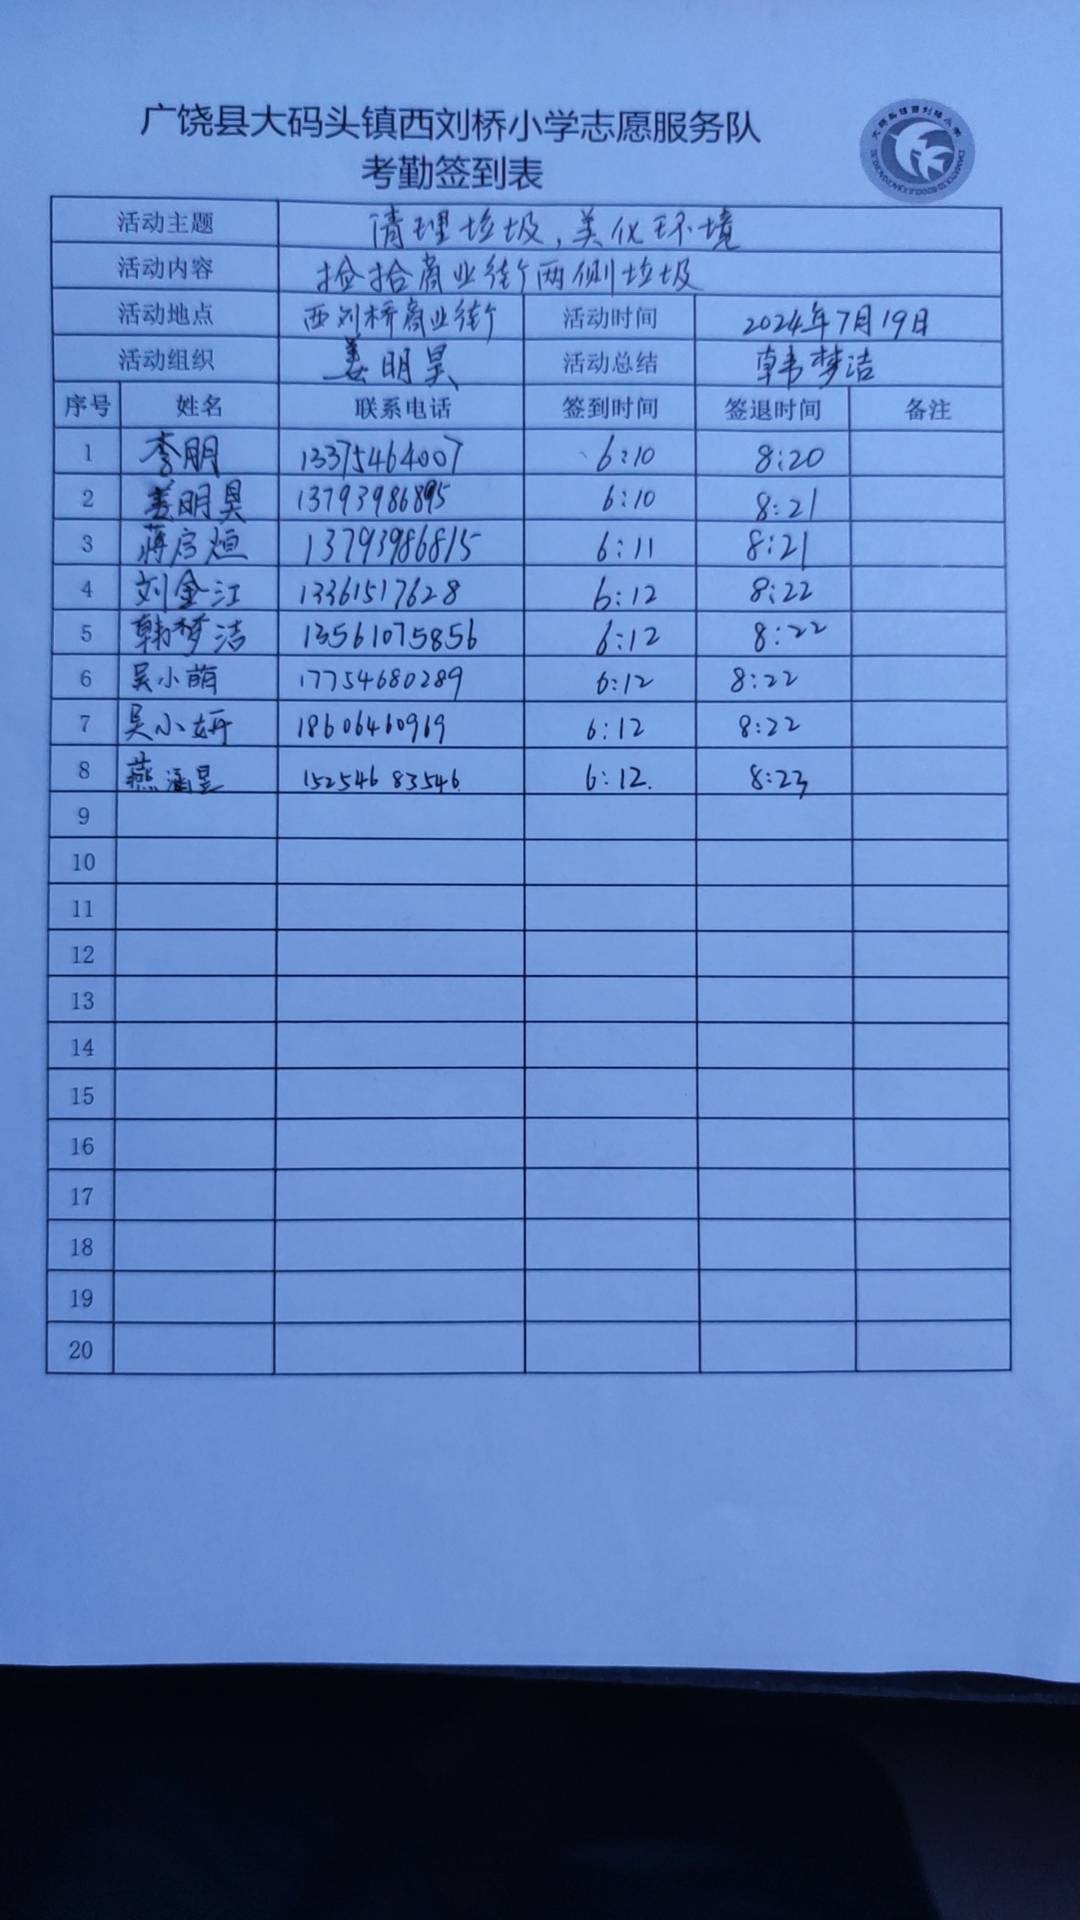 广饶县大码头镇西刘桥小学志愿服务队
考勤签到表
活动主题 清理垃圾,美化环境
活动内容 捡拾商业街两侧垃圾
活动地点 西刘桥商业街 活动时间 2024年7月19日
活动组织 姜明昊 活动总结 韩梦洁
序号 姓名 联系电话 签到时间 签退时间 备注
1 李朋 13375464007 6:10 8:20
2 姜明昊 13793986895 6:10 8:21
3 蒋启烜 13793986815 6:11 8:21
4 刘金江 13361517628 6:12 8:22
5 韩梦洁 13561075856 6:12 8:22
6 吴小萌 17754680289 6:12 8:22
7 吴小妍 18606460969 6:12 8:22
8 燕涵昱 15254683546. 6:12. 8:23
9
10
11
12
13
14
15
16
17
18
19
20